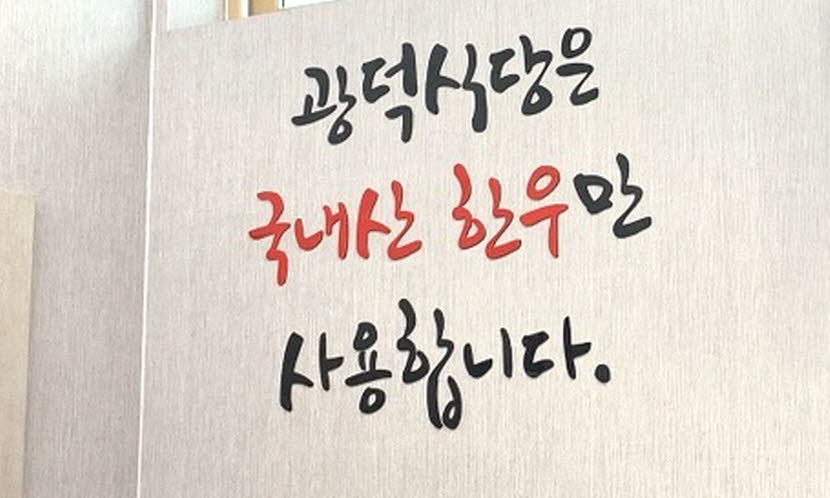 광덕식당은
국내산 한우만
사용합니다.